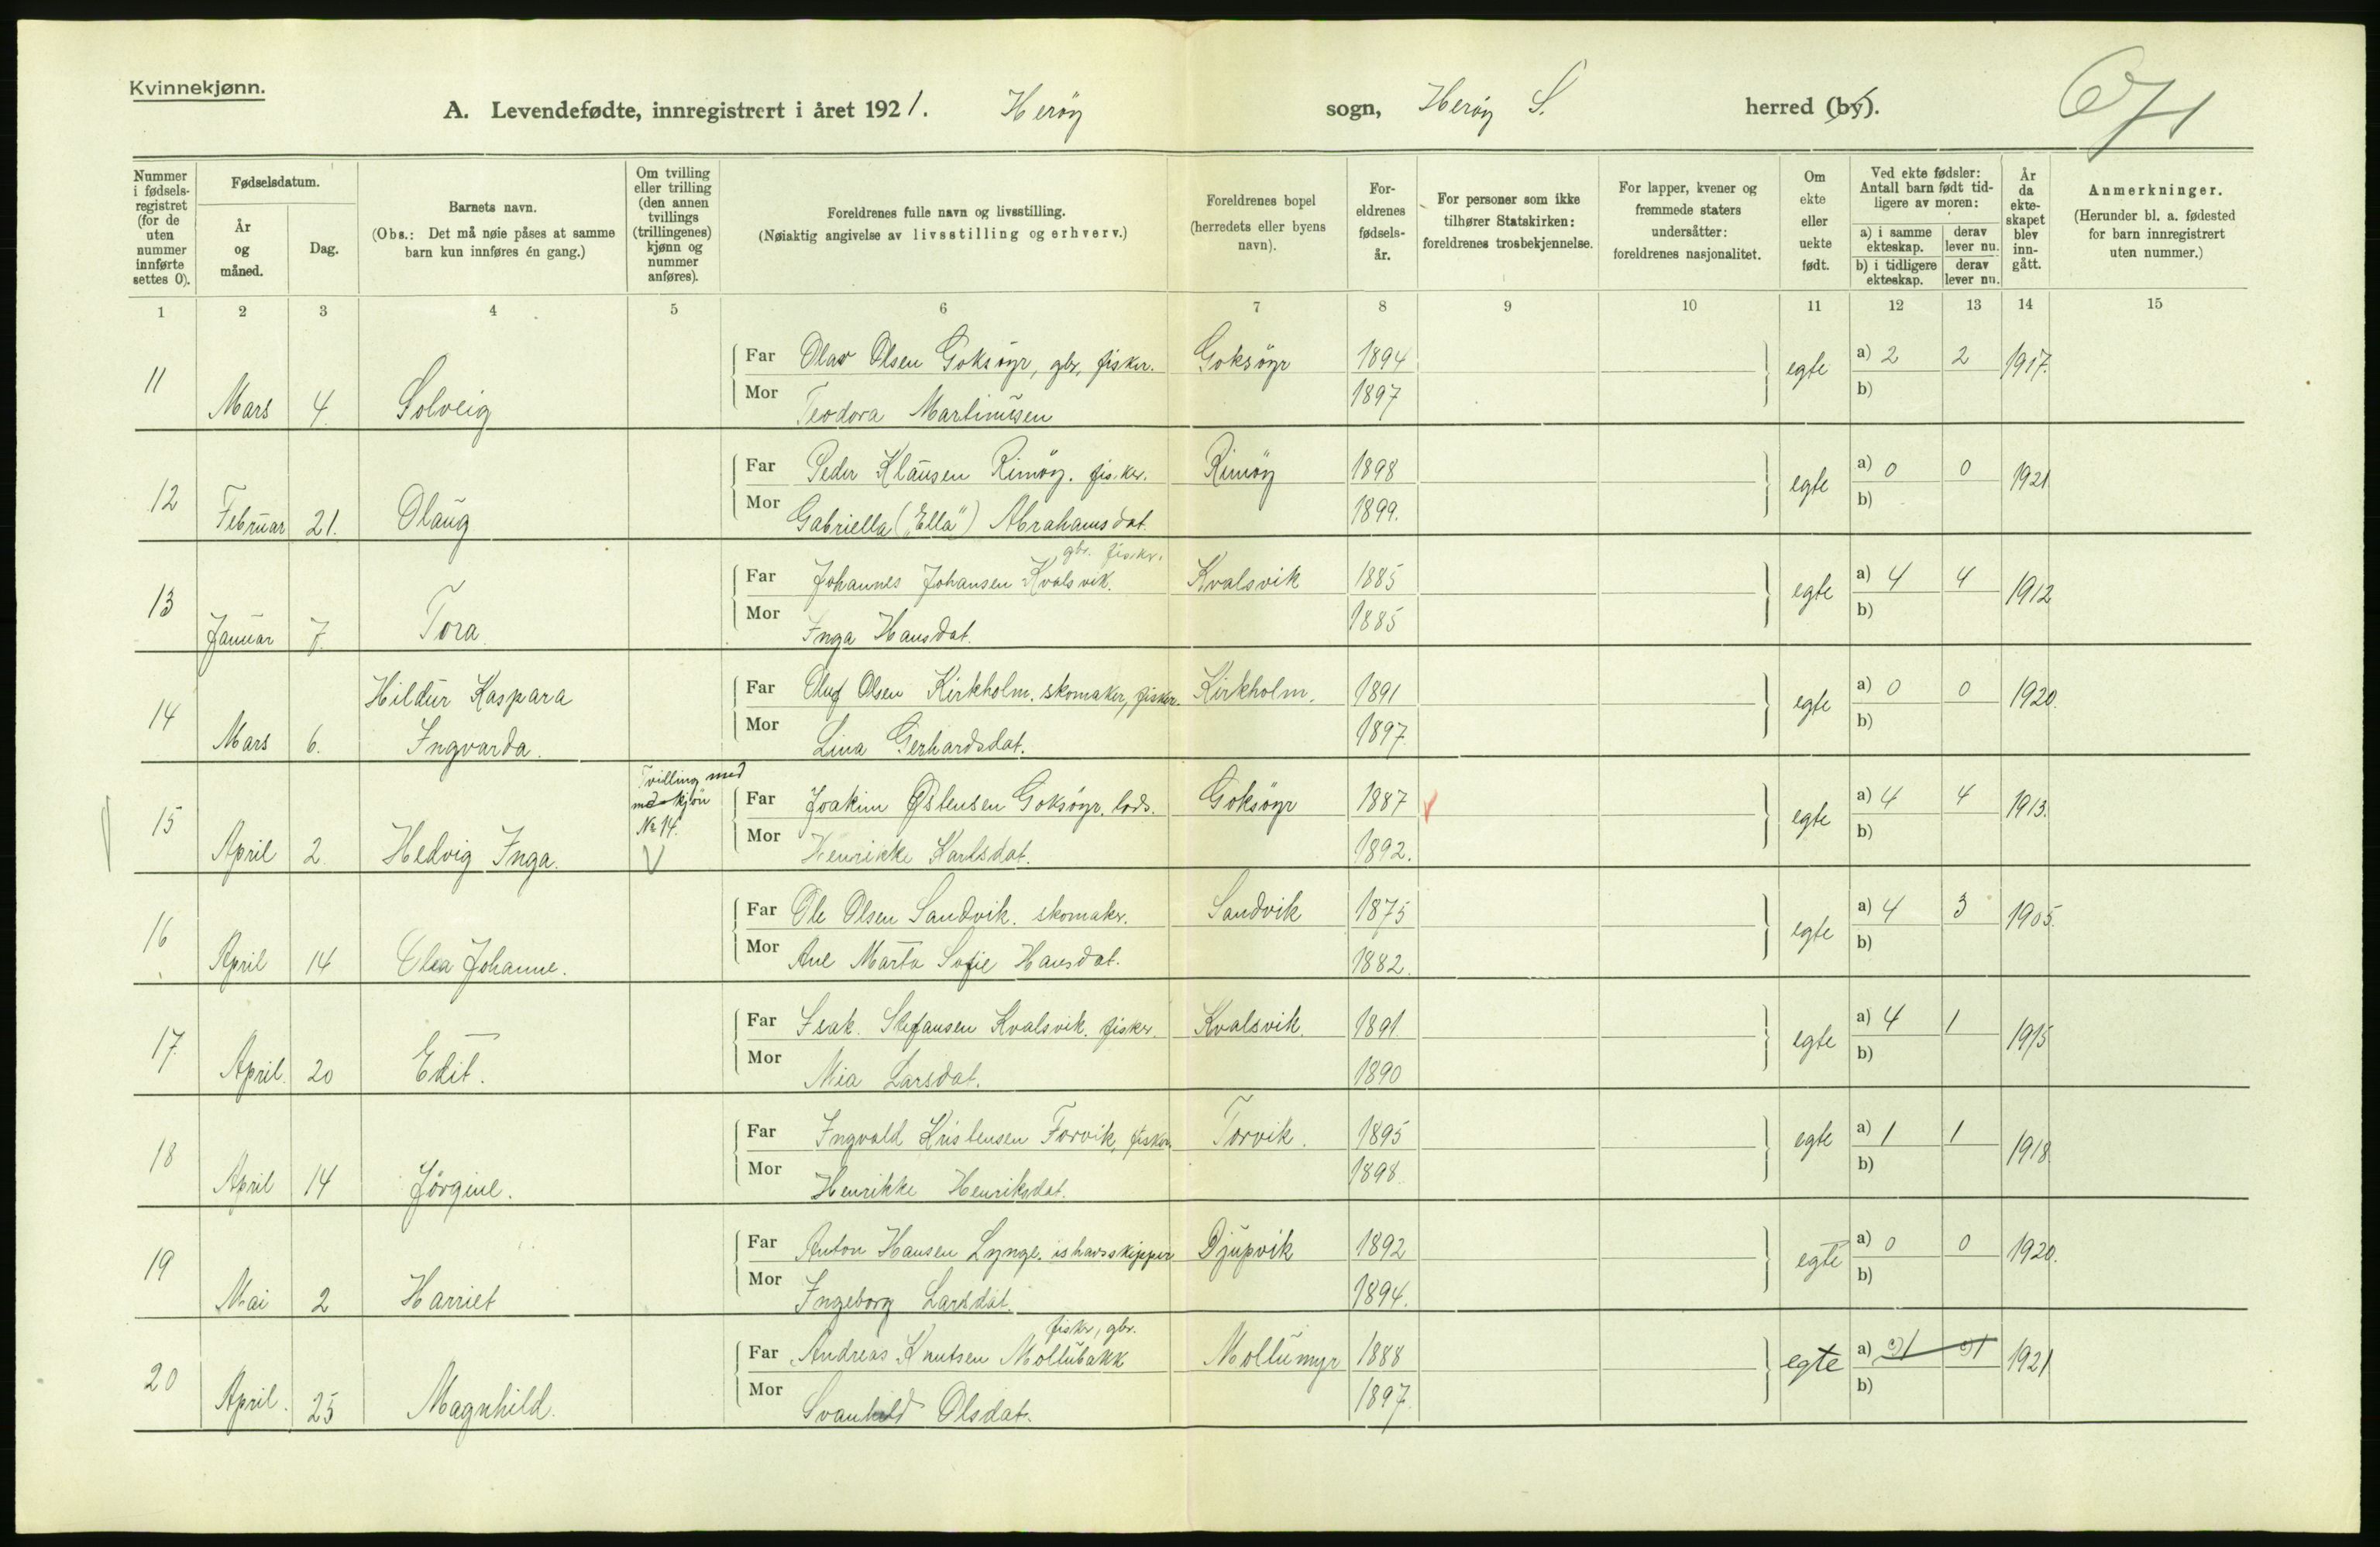 Kvinnekjønn.
A. Levendefødte, innregistrert i året 1921. Herøy sogn, Herøy S. herred (by).
Nummer i fødsels-registret (for de uten nummer innførte settes 0).
Fødselsdatum.
År og måned.
Dag.
Barnets navn.
(Obs.: Det må nøie påses at samme barn kun innføres én gang.)
Om tvilling eller trilling (den annen tvillings (trillingenes) kjønn og nummer anføres).
Foreldrenes fulle navn og livsstilling.
(Nøiaktig angivelse av livsstilling og erhverv.)
Foreldrenes bopel (herredets eller byens navn).
For-eldrenes fødsels-år.
For personer som ikke tilhører Statskirken: foreldrenes trosbekjennelse.
For lapper, kvener og fremmede staters undersåtter: foreldrenes nasjonalitet.
Om ekte eller uekte født.
Ved ekte fødsler: Antall barn født tid-ligere av moren:
a) i samme ekteskap.
derav lever nu.
b) i tidligere ekteskap.
derav lever nu.
År da ekte-skapet blev inn-gått.
Anmerkninger.
(Herunder bl. a. fødested for barn innregistrert uten nummer.)
1 2 3 4 5 6 7 8 9 10 11 12 13 14 15
11 Mars 4. Solveig
Far Olav Olsen Goksöyr, gbr, fisker. Goksöyr 1894 egte a) 2 2 1917.
Mor Teodora Martinusen 1897 b)
12 Februar 21. Olaug
Far Peder Klausen Rimöy. fisker. Rimöy 1898 egte a) 0 0 1921
Mor Gabriella („Ella") Abrahamsdat. 1899. b)
13 Januar 7. Tora
gbr. fisker.
Far Johannes Johansen Kvalsvik. Kvalsvik 1885 egte a) 4 4 1912
Mor Inga Hansdat. 1885 b)
14 Mars 6. Hildur Kaspara
Ingvarda.
Far Oluf Olsen Kirkholm. skomaker, fisker. Kirkholm. 1891 egte a) 0 0 1920.
Mor Lina Gerhardsdat. 1897 b)
15 April 2. Hedvig Inga.
Tvilling med
m kjön
Nr 14.
V
Far Joakim Østensen Goksöyr. lods. Goksöyr 1887 egte a) 4 4 1913.
Mor Henrikke Karlsdat. 1892. b)
16 April 14 Johanne.
Far Ole Olsen Sandvik. skomaker. Sandvik 1875 egte a) 4 3 1905.
Mor Ane Marta Sofie Hansdat. 1882. b)
17. April. 20 Edit.
Far Isak. Stefansen Kvalsvik. fisker. Kvalsvik. 1891. egte a) 4 1 1915
Mor Mia Larsdat. 1890 b)
18 April 14 Jörgine.
Far Ingvald Kristensen Torvik, fisker Torvik. 1895 egte a) 1 1 1918.
Mor Henrikke Henriksdat. 1898. b)
19 Mai 2 Harriet
Far Anton Hansen Lynge. ishavsskipper Djupvik 1892 egte a) 0 0 1920.
Mor Ingeborg Larsdat. 1894. b)
20 April. 25 Magnhild.
fisker, gbr.
Far Andreas Knutsen Mollubakk Mollumyr 1888 egte a) 1921
Mor Svanhild Olsdat. 1897. b)